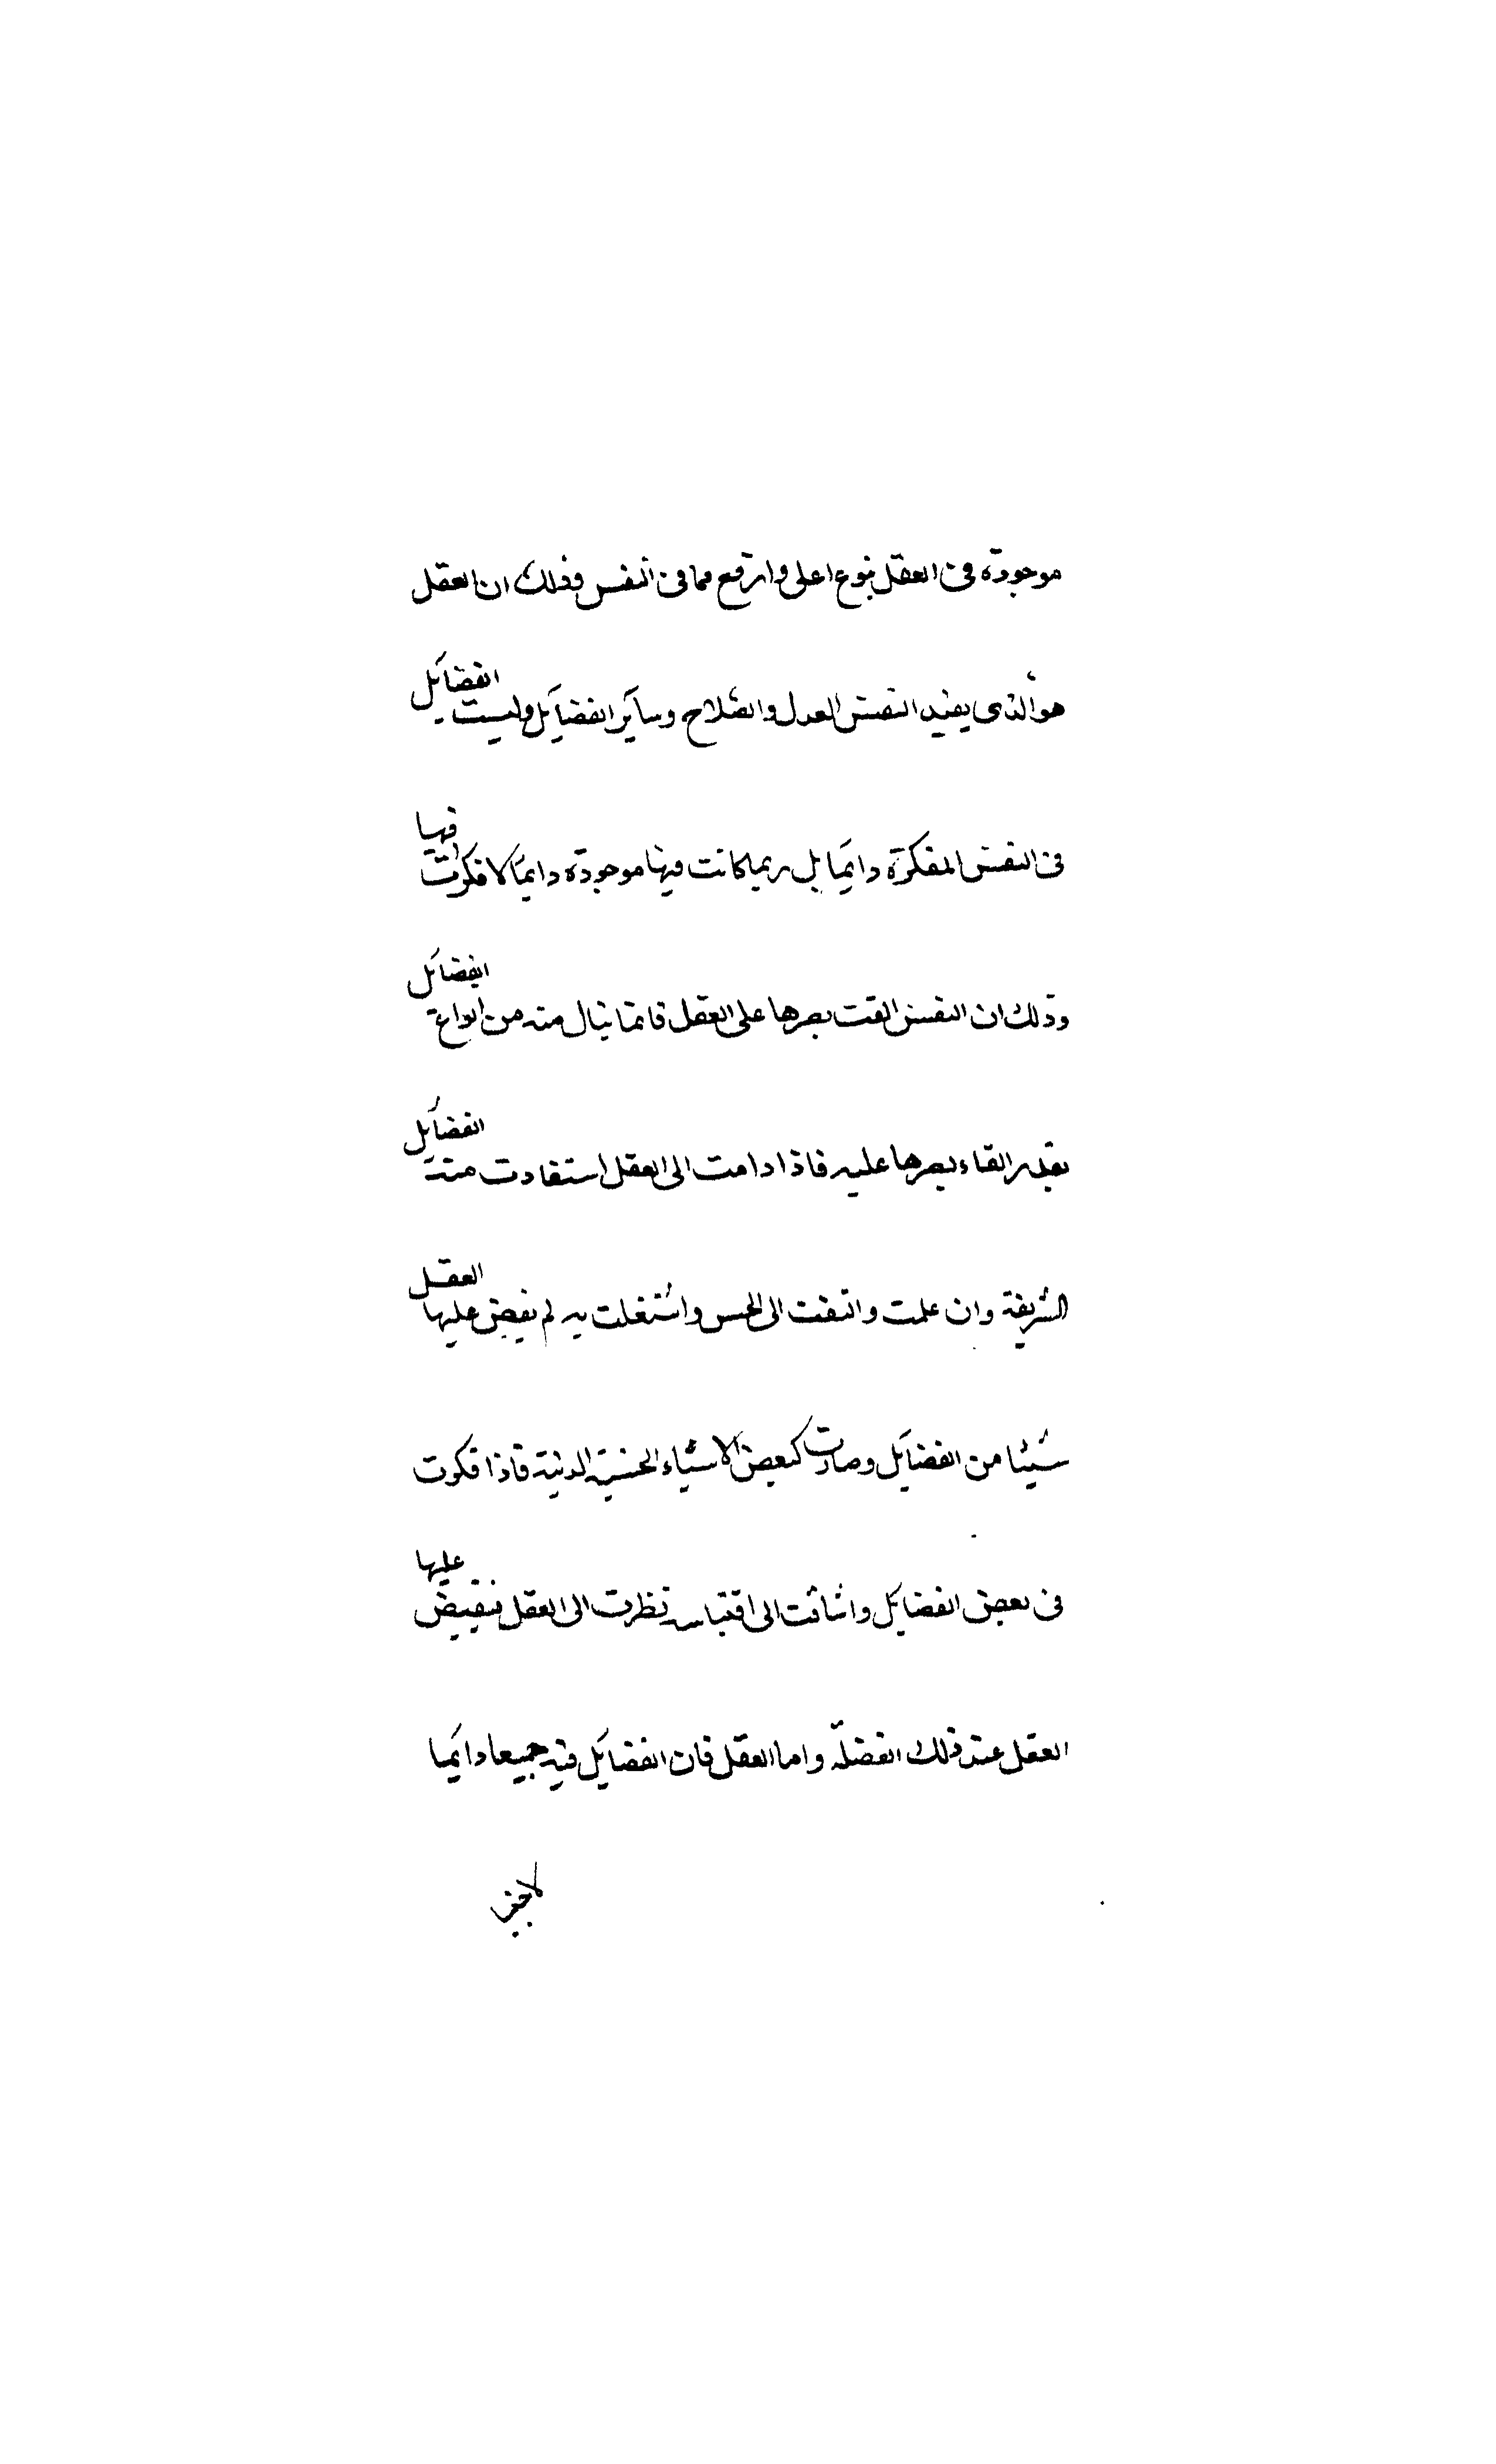 موجودة فى العقل بنوع اعلى وارفع مما فى النفس وذلك ان العقل
هو الذى يفيد النفس العدل والصلاح وساير الفضايل وليست الفضايل
فى النفس المفكرة دايما بل ربما كانت فيها موجودة دايما لا فكرت فيها
وذلك ان النفس القت بصرها على العقل فانما ينال منه من انواع الفضايل
بقدر القاء بصرها عليه فاذا دامت الى العقل استفادت منه الفضايل
الشريفة وان علمت والتفت الى الحس واشتغلت به لم يفيض عليها العقل
شيئا من الفضايل وصارت كبعض الاشياء الحسية الدنية فاذا فكرت
فى بعض الفضايل واشاقت الى اقتباسه نظرت الى العقل فيفيض عليها
العقل عند ذلك الفضلة واما العقل فان الفضايل فيه جميعا دايما
لا حينا